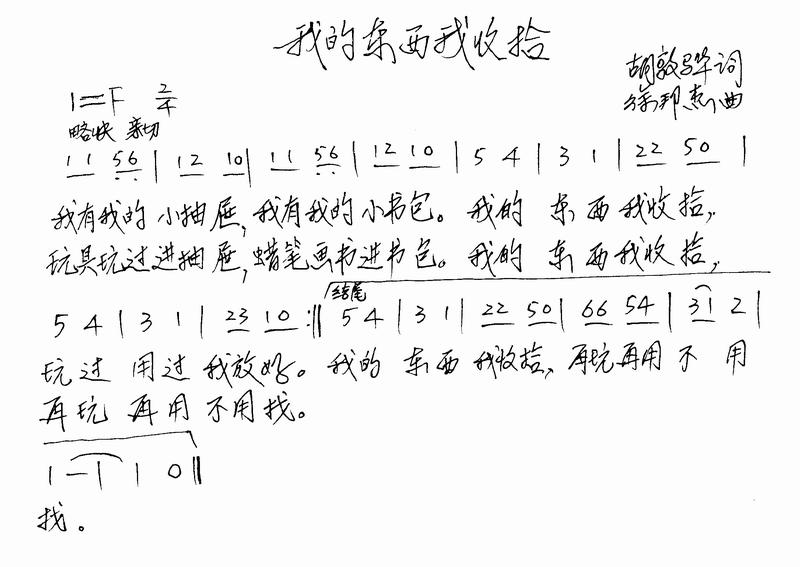 我的东西我收拾
胡敦骅词
1=F 2/4
徐邦杰曲
略快 亲切
11 56 | 12 10 | 11 56 | 12 10 | 5 4 | 3 1 | 22 50 |
我有我的小抽屉,我有我的小书包。我的 东西我收拾,
玩具玩过进抽屉,蜡笔画书进书包。我的 东西我收拾,
结尾
5 4 | 3 1 | 23 10 :|| 5 4 | 3 1 | 22 50 | 66 54 | 31 2 |
玩过 用过 我放好。我的 东西 我收拾、再玩再用 不 用
再玩 再用 不用找。
1 — | 1 0 ||
找。